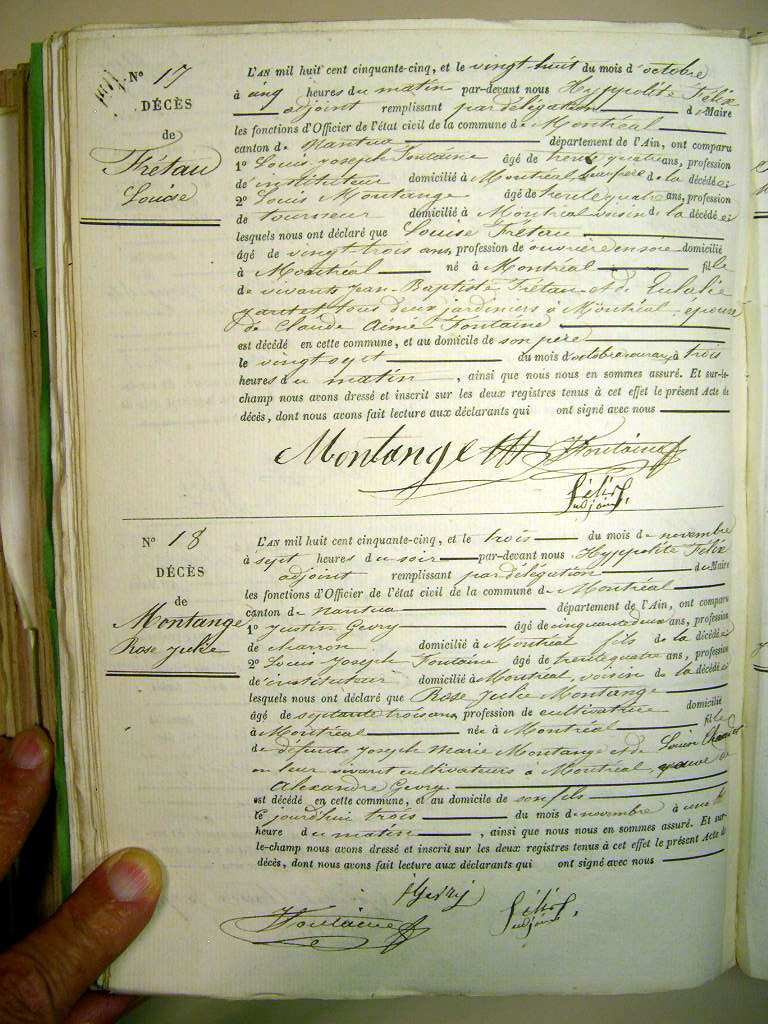 N° 17
DÉCÈS
de
Frétau
Louise
L'AN mil huit cent cinquante-cinq, et le vingt huit du mois d'octobre
à cinq heures du matin par-devant nous Hyppolite Félix
adjoint remplissant par délégation du Maire
les fonctions d'Officier de l'état civil de la commune de Montréal
canton de Nantua département de l'Ain, ont comparu
1° Louis Joseph Fontaine âgé de trente quatre ans, profession
de instituteur domicilié à Montréal beau frère de la décédée
2° Louis Montange âgé de trente quatre ans, profession
de tourneur domicilié à Montréal voisin de la décédée
lesquels nous ont déclaré que Louise Frétau
âgé de vingt trois ans, profession de ouvrière en soie domicilié
à Montréal né à Montréal fille
de vivants Jean-Baptiste Frétau et de Eulalie
tous deux jardiniers à Montréal, épouse
de Claude Aimé Fontaine
est décédé en cette commune, et au domicile de son père
le vingt sept du mois d'octobre courant à trois
heures du matin, ainsi que nous nous en sommes assuré. Et sur-le-
champ nous avons dressé et inscrit sur les deux registres tenus à cet effet le présent Acte de
décès, dont nous avons fait lecture aux déclarants qui ont signé avec nous
Montange Fontaine
Félix,
adjoint
N° 18
DÉCÈS
de
Montange
Rose Julie
L'AN mil huit cent cinquante-cinq, et le trois du mois de novembre
à sept heures du soir par-devant nous Hyppolite Félix
adjoint remplissant par délégation du Maire
les fonctions d'Officier de l'état civil de la commune de Montréal
canton de Nantua département de l'Ain, ont comparu
1° Justin Gevry âgé de cinquante deux ans, profession
de charron domicilié à Montréal fils de la décédée
2° Louis Joseph Fontaine âgé de trente quatre ans, profession
de instituteur domicilié à Montréal, voisin de la décédée
lesquels nous ont déclaré que Rose Julie Montange
âgé de septante trois ans, profession de cultivatrice domicilié
à Montréal née à Montréal fille
de défunts Joseph Marie Montange et de Louise
en leur vivant cultivateurs à Montréal, veuve de
Alexandre Gevry
est décédé en cette commune, et au domicile de son fils
le jourd'hui trois du mois de novembre à une
heure du matin, ainsi que nous nous en sommes assuré. Et sur-
le-champ nous avons dressé et inscrit sur les deux registres tenus à cet effet le présent Acte de
décès, dont nous avons fait lecture aux déclarants qui ont signé avec nous
JGevry
Fontaine Félix,
adjoint